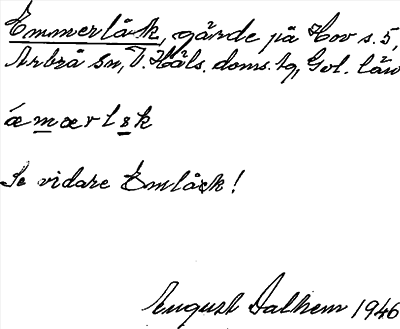 Emmerlåsk, gärde på Hov s. 5,
Arbrå sn, V. Häls. doms. tg, Gvl. län
æmærlsk
Se vidare Emlåsk!
August Dalhem 1946